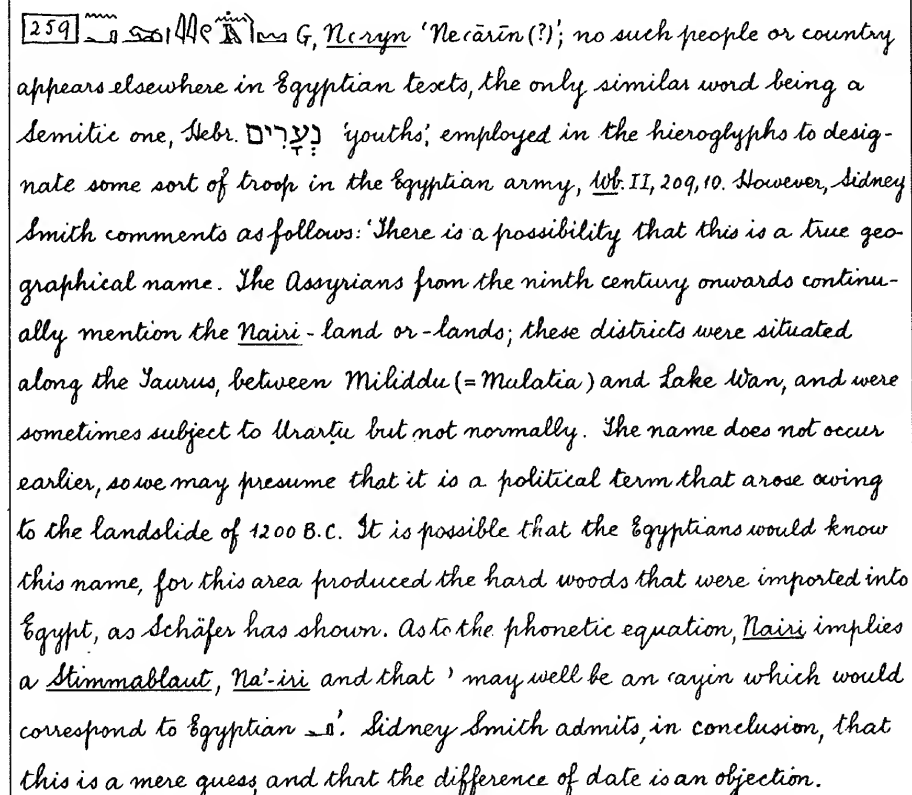 259 G, Ncryn ‘Necārīn(?)’; no such people or country
appears elsewhere in Egyptian texts, the only similar word being a
Semitic one, Hebr. נְעָרִים ‘youths’, employed in the hieroglyphs to desig-
nate some sort of troop in the Egyptian army, Wb. II, 209, 10. However, Sidney
Smith comments as follows: ‘There is a possibility that this is a true geo-
graphical name. The Assyrians from the ninth century onwards continu-
ally mention the Nairi-land or -lands; these districts were situated
along the Taurus, between Miliddu (= Mulatia) and Lake Wan, and were
sometimes subject to Urarṭu but not normally. The name does not occur
earlier, so we may presume that it is a political term that arose owing
to the landslide of 1200 B.C. It is possible that the Egyptians would know
this name, for this area produced the hard woods that were imported into
Egypt, as Schäfer has shown. As to the phonetic equation, Nairi implies
a Stimmablaut, Na’-iri and that ’ may well be an cayin which would
correspond to Egyptian 𓂝’. Sidney Smith admits, in conclusion, that
this is a mere guess, and that the difference of date is an objection.